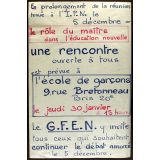 En prolongement de la réunion
tenue à l'I.F.E.N. le
5 décembre -
le rôle du maître
dans l'éducation nouvelle
une rencontre
ouverte à tous
est prévue à
l'école de garçons
9 rue Bretonneau
Paris 20e
le jeudi 30 janvier
à 15 heures
Le G.F.E.N. y invite
tous ceux qui souhaitent
continuer le débat amorcé
le 5 décembre.